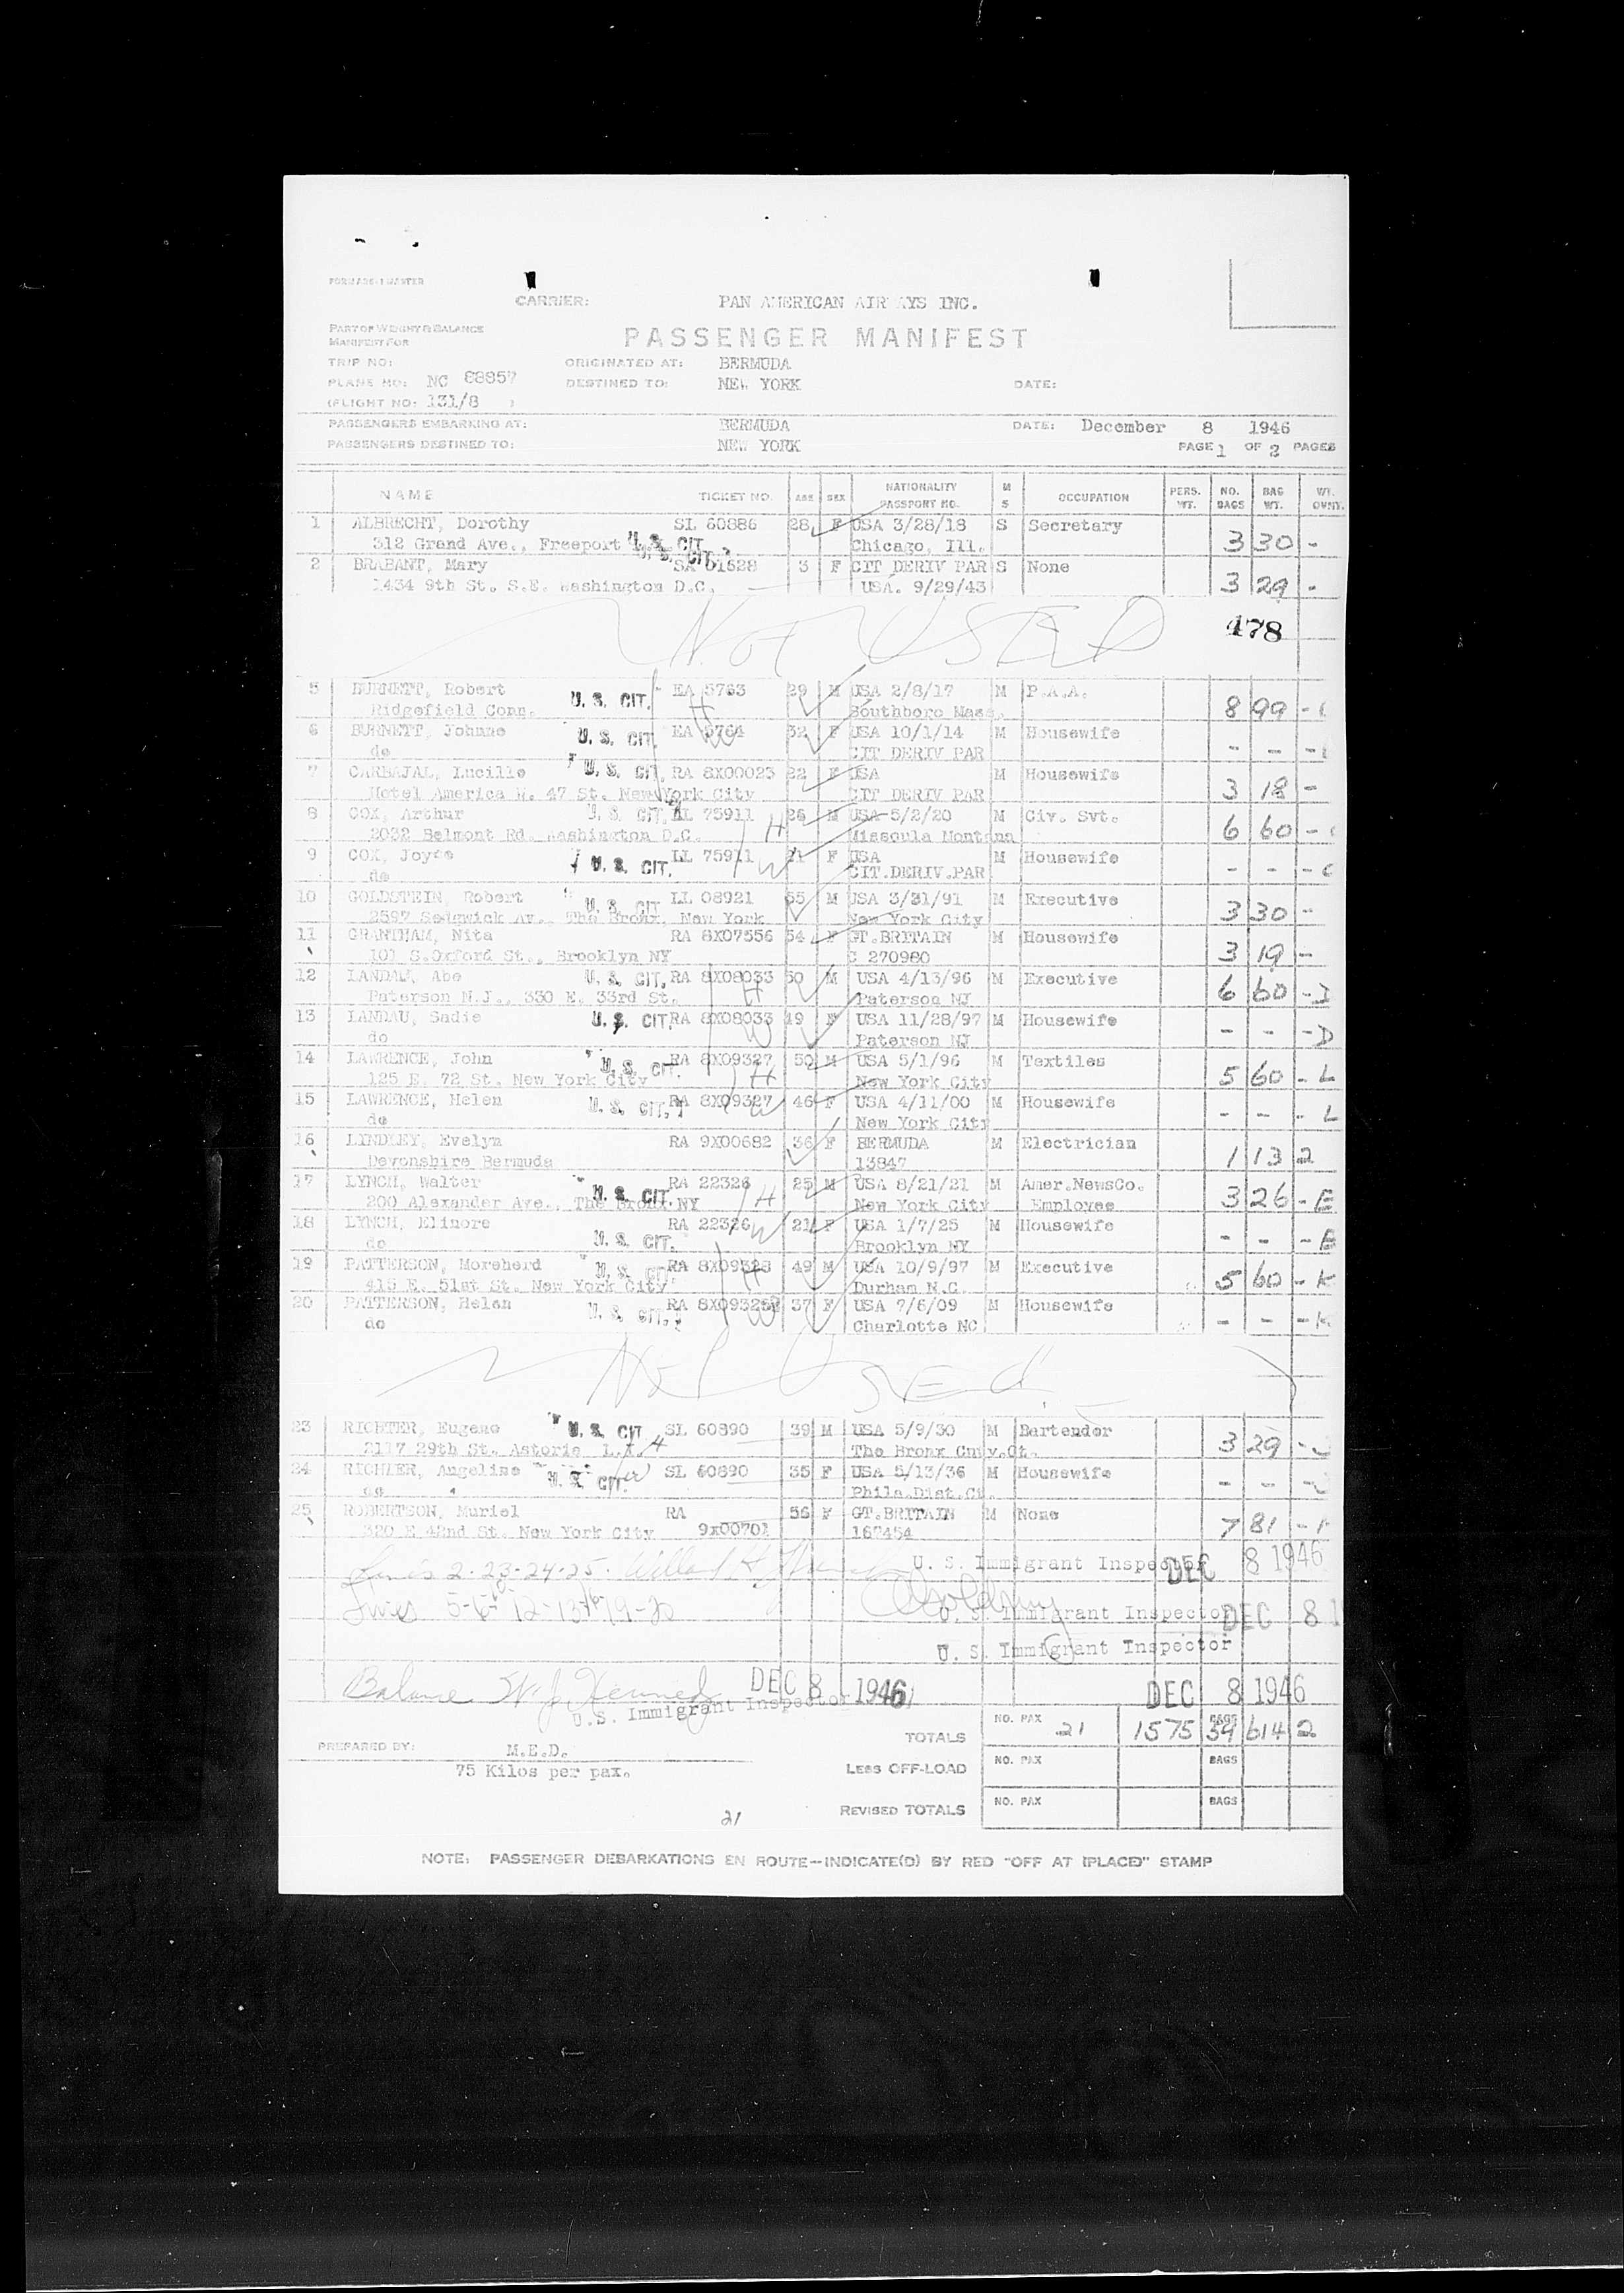 FORM ASC-1 MASTER
CARRIER: PAN AMERICAN AIRWAYS INC.
PART OF WEIGHT & BALANCE
MANIFEST FOR
PASSENGER MANIFEST
TRIP NO: ORIGINATED AT: BERMUDA
PLANE NO: NC 88857 DESTINED TO: NEW YORK DATE:
(FLIGHT NO: 131/8 )
PASSENGERS EMBARKING AT: BERMUDA DATE: December 8 1946
PASSENGERS DESTINED TO: NEW YORK PAGE 1 OF 2 PAGES
NAME TICKET NO. AGE SEX NATIONALITY PASSPORT NO. M S OCCUPATION PERS. WT. NO. BAGS BAG WT. WT. OVWT.
1 ALBRECHT, Dorothy SL 60886 28 F USA 3/28/18 S Secretary
312 Grand Ave., Freeport U. S. CIT. Chicago, Ill. 3 30 -
2 BRABANT, Mary U. S. CIT. SA 61528 3 F CIT DERIV PAR S None
1434 9th St. S.E. Washington D.C. USA. 9/29/43 3 29 -
NOT USED 478
5 BURNETT, Robert U. S. CIT. EA 5763 29 M USA 2/8/17 M P.A.A.
Ridgefield Conn. Southboro Mass. 8 99 -
6 BURNETT, Johnne U. S. CIT. EA 5764 W 32 F USA 10/1/14 M Housewife
do CIT DERIV PAR - - -
7 CARBAJAL, Lucille U. S. CIT. RA 8X00023 22 F USA M Housewife
Hotel America W. 47 St. New York City CIT DERIV PAR 3 18 -
8 COX, Arthur U. S. CIT. LL 75911 H 26 M USA 5/2/20 M Civ. Svt.
2032 Belmont Rd. Washington D.C. Missoula Montana 6 60 -
9 COX, Joyce U. S. CIT. LL 75911 W 21 F USA M Housewife
do CIT.DERIV.PAR - - -
10 GOLDSTEIN, Robert U. S. CIT LL 08921 55 M USA 3/31/91 M Executive
2597 Sedgwick Av., The Bronx, New York New York City 3 30 -
11 GRANTHAM, Nita RA 8X07556 54 F GT.BRITAIN M Housewife
101 S.Oxford St., Brooklyn NY C 270980 3 19 -
12 LANDAU, Abe U. S. CIT. RA 8X08033 H 50 M USA 4/13/96 M Executive
Paterson N.J., 330 E. 33rd St. Paterson NJ 6 60 -
13 LANDAU, Sadie U. S. CIT. RA 8X08033 W 49 F USA 11/28/97 M Housewife
do Paterson NJ - - - D
14 LAWRENCE, John U. S. CIT. RA 8X09327 H 50 M USA 5/1/96 M Textiles
125 E. 72 St. New York City New York City 5 60 - L
15 LAWRENCE, Helen U. S. CIT. RA 8X09327 W 46 F USA 4/11/00 M Housewife
do New York City - - - L
16 LYNDLEY, Evelyn RA 9X00682 36 F BERMUDA M Electrician
Devonshire Bermuda 13847 1 13 2
17 LYNCH, Walter U. S. CIT. RA 22326 H 25 M USA 8/21/21 M Amer.NewsCo.
200 Alexander Ave., The Bronx NY New York City Employee 3 26 - E
18 LYNCH, Elinore U. S. CIT. RA 22326 W 21 F USA 1/7/25 M Housewife
do Brooklyn NY - - - E
19 PATTERSON, Moreherd U. S. CIT. RA 8X09328 H 49 M USA 10/9/97 M Executive
415 E. 51st St. New York City Durham N.C. 5 60 - K
20 PATTERSON, Helen U. S. CIT. RA 8X09328 W 37 F USA 7/6/09 M Housewife
do Charlotte NC - - - K
Not Used
23 RICHTER, Eugene U. S. CIT SL 60890 39 M USA 5/9/30 M Bartender
2117 29th St. Astoria L.I. H The Bronx Cnty.Ct. 3 29 -
24 RICHTER, Angeline U. S. CIT. W SL 60890 35 F USA 5/13/36 M Housewife
do Phila.Dist.Ct. - - -
25 ROBERTSON, Muriel RA 56 F GT.BRITAIN M None
320 E 42nd St. New York City 9x00701 167454 7 81 -
Lines 2-23-24-25 U. S. Immigrant Inspector DEC 8 1946
Lines 5-6- 12-13- 19-20 U. S. Immigrant Inspector DEC 8 1
U. S. Immigrant Inspector
Balance W. J. Kennedy DEC 8 1946 DEC 8 1946
U.S. Immigrant Inspector
TOTALS NO. PAX 21 1575 BAGS 59 614 2
PREPARED BY: M.E.D.
75 Kilos per pax. LESS OFF-LOAD NO. PAX BAGS
21 REVISED TOTALS NO. PAX BAGS
NOTE: PASSENGER DEBARKATIONS EN ROUTE—INDICATE(D) BY RED "OFF AT (PLACE)" STAMP